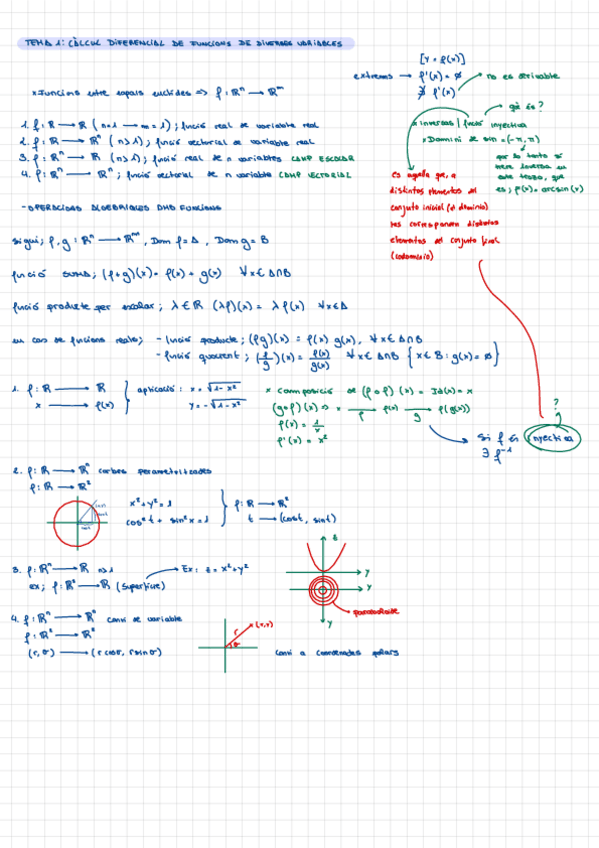 TEMA 1: CÀLCUL DIFERENCIAL DE FUNCIONS DE DIVERSES VARIABLES
[y = f(x)]
extrems → f'(x) = ∅ → no es derivable
∄ f'(x)
* Funcions entre espais euclídis => f: ℝⁿ → ℝᵐ
què és?
* inversas / funció inyectiva
* Domini de sin = (-π, π)
que por tanto sí
tiene inversa en
este trozo, que
es; f'(x) = arcsin(x)
1. f: ℝ → ℝ (n=1 → m=1); funció real de variable real
2. f: ℝ → ℝⁿ (n>1); funció vectorial de variable real
3. f: ℝⁿ → ℝ (n>1); funció real de n variables CAMP ESCALAR
4. f: ℝⁿ → ℝⁿ; funció vectorial de n variable CAMP VECTORIAL
es aquella que, a
distintos elementos del
conjunto inicial (el dominio)
les corresponden distintos
elementos del conjunto final
(codominio)
- OPERACIONS ALGEBRAIQUES AMB FUNCIONS
sigui; f, g: ℝⁿ → ℝᵐ, Dom f = A, Dom g = B
funció SUMA; (f+g)(x) = f(x) + g(x) ∀x ∈ A∩B
funció producte per escalar; λ ∈ ℝ (λf)(x) = λ f(x) ∀x ∈ A
en cas de funcions reals; - funció producte; (fg)(x) = f(x) g(x), ∀x ∈ A∩B
- funció quocient; (f/g)(x) = f(x)/g(x) ∀x ∈ A∩B {x ∈ B: g(x) = ∅}
1. f: ℝ → ℝ
x → f(x)
aplicació: x = √1-x²
y = -√1-x²
* composició de (f∘f)(x) = Id(x) = x
(g∘f)(x) => x → f(x) → f(g(x))
f g
f(x) = 1/x
f'(x) = x²
?
si f és inyectiva
∃ f⁻¹
2. f: ℝ → ℝⁿ corbes parametritzades
f: ℝ → ℝ²
x² + y² = 1
cos² t + sin² x = 1
f: ℝ → ℝ²
t → (cost, sint)
3. f: ℝⁿ → ℝ n>1
ex; f: ℝ² → ℝ (superfície)
Ex: z = x² + y²
z
y
y
y
paraboloide
4. f: ℝⁿ → ℝⁿ canvi de variable
f: ℝ² → ℝ²
(r, σ) → (r cosσ, r sinσ)
r
σ
canvi a coordenades polars